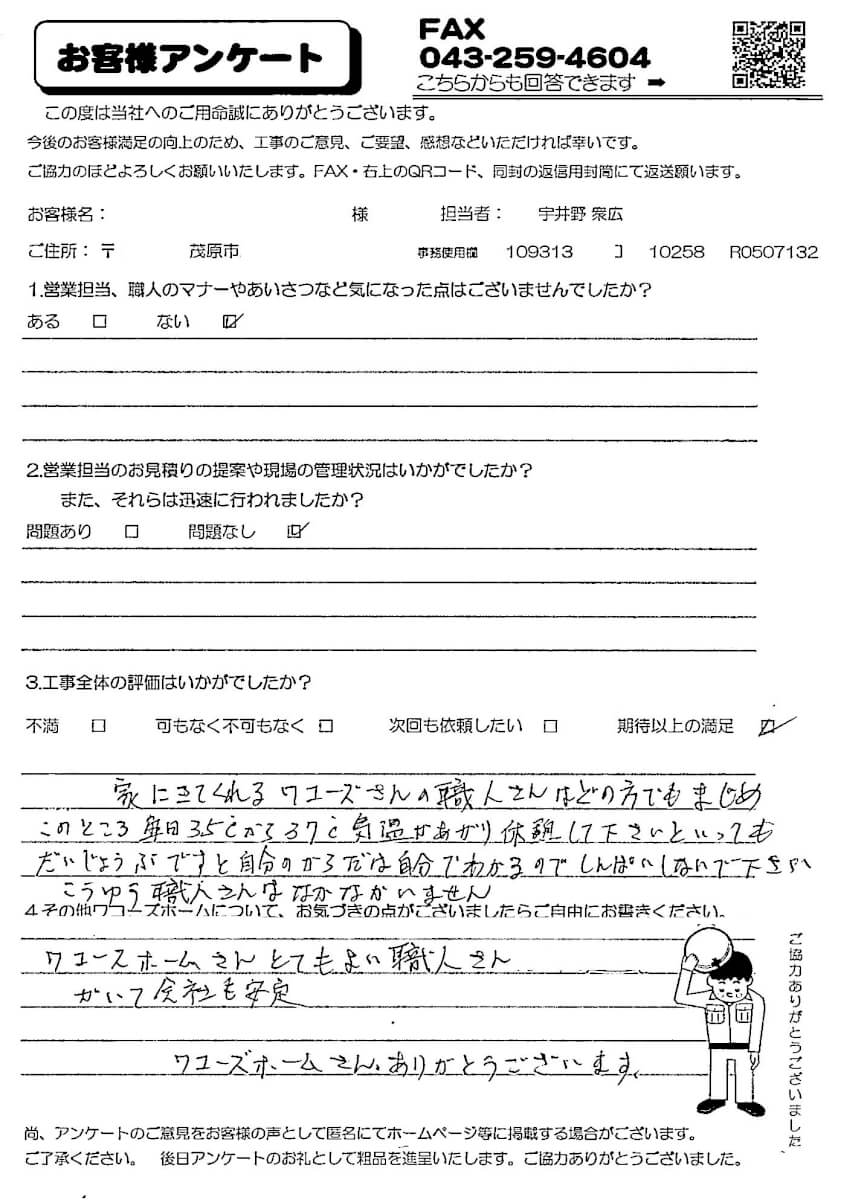 お客様アンケート
FAX
043-259-4604
こちらからも回答できます ➡
この度は当社へのご用命誠にありがとうございます。
今後のお客様満足の向上のため、工事のご意見、ご要望、感想などいただければ幸いです。
ご協力のほどよろしくお願いいたします。FAX・右上のQRコード、同封の返信用封筒にて返送願います。
お客様名： 様 担当者： 宇井野 衆広
ご住所：〒 茂原市 事務使用欄 109313 コ 10258 R0507132
1.営業担当、職人のマナーやあいさつなど気になった点はございませんでしたか？
ある □ ない ☑
2.営業担当のお見積りの提案や現場の管理状況はいかがでしたか？
また、それらは迅速に行われましたか？
問題あり □ 問題なし ☑
3.工事全体の評価はいかがでしたか？
不満 □ 可もなく不可もなく □ 次回も依頼したい □ 期待以上の満足 ☑
家にきてくれるワコーズさんの職人さんはどの方でもまじめ
このところ毎日35℃から37℃気温があがり休憩して下さいといっても
だいじょうぶですと自分のからだは自分でわかるのでしんぱいしないで下さい
こうゆう職人さんはなかなかいません
4.その他ワコーズホームについて、お気づきの点がございましたらご自由にお書きください。
ワコースホームさんとてもよい職人さん
がいて会社も安定
ワコーズホームさん、ありがとうございます。
ご協力ありがとうございました
尚、アンケートのご意見をお客様の声として匿名にてホームページ等に掲載する場合がございます。
ご了承ください。 後日アンケートのお礼として粗品を進呈いたします。ご協力ありがとうございました。